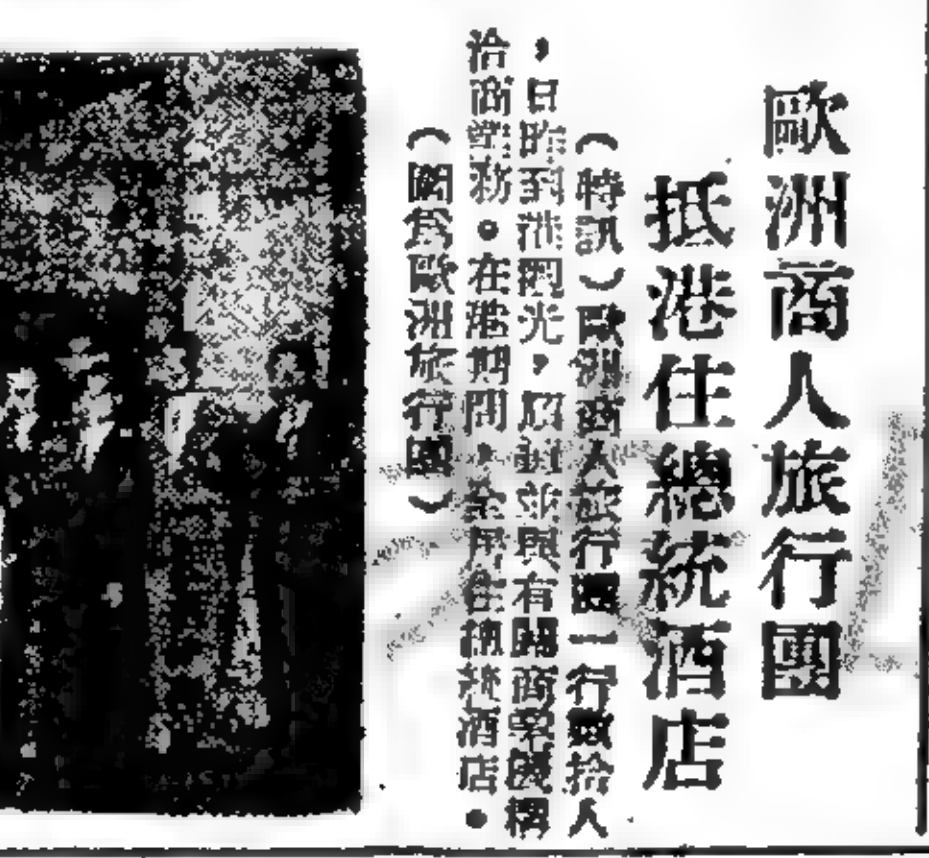 歐洲商人旅行團
抵港住總統酒店
（特訊）歐洲商人旅行團一行數拾人
，日昨到港觀光，並與有關商業機構
洽商業務。在港期間，全居住總統酒店。
（圖為歐洲旅行團）